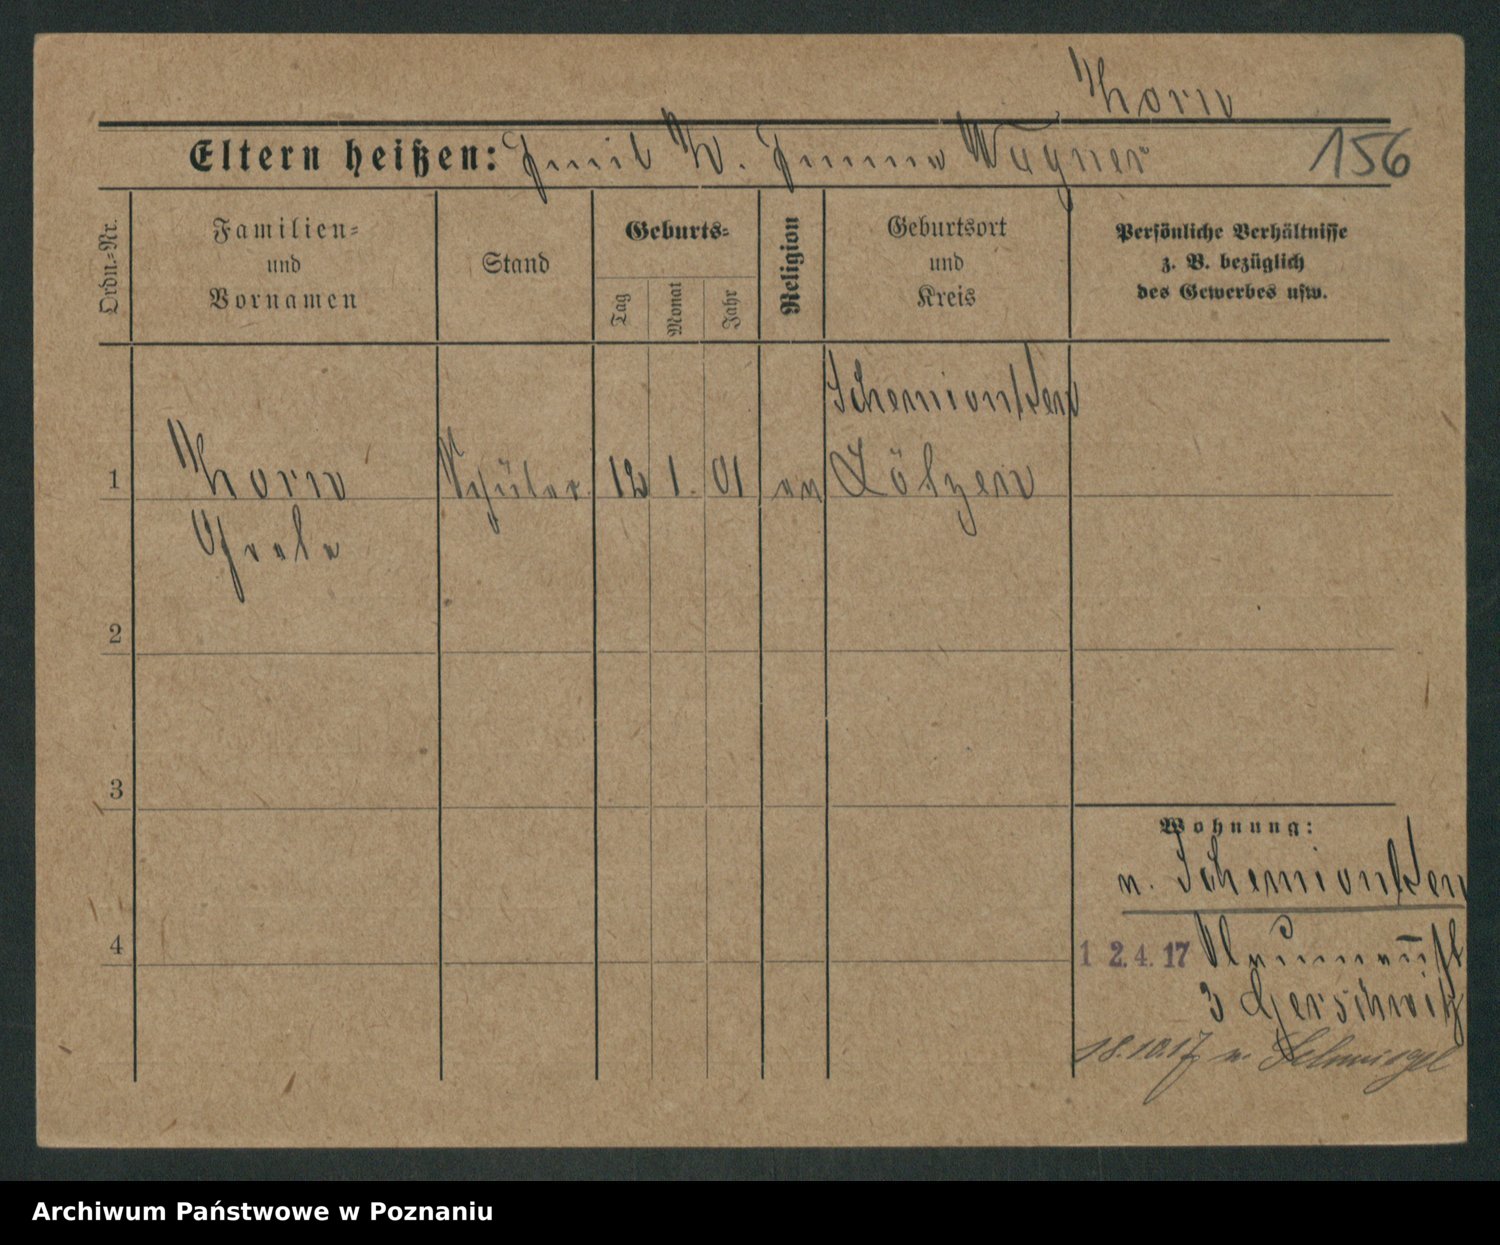 Thorn
Eltern heißen: Emil Th. Emma Wagner
156
Ordn.-Nr.
Familien-
und
Vornamen
Stand
Geburts-
Tag
Monat
Jahr
Religion
Geburtsort
und
Kreis
Persönliche Verhältnisse
z. B. bezüglich
des Gewerbes usw.
Schemionken
1 Thorn Schüler 12 1. 01 ev Lötzen
2
3
4
Wohnung:
n. Schemionken
1 2. 4. 17
3 Gerschwitz
18.10.17 n. Schmiegel
Archiwum Państwowe w Poznaniu